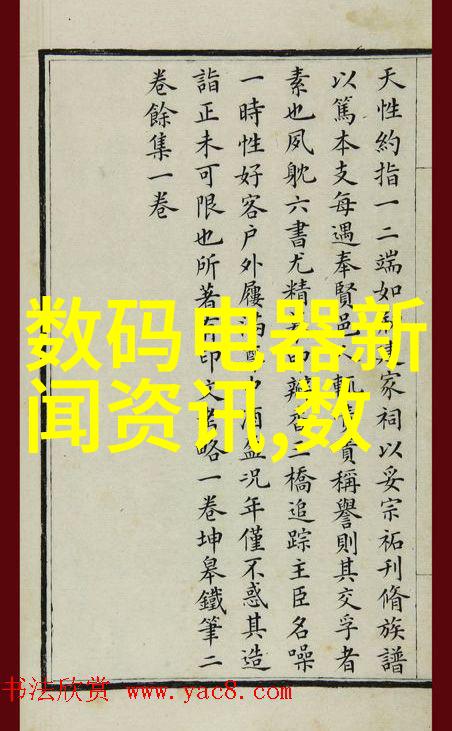 天性約指一二端如建家祠以妥宗祏刊脩族譜
以篤本支每遇奉賢邑稱譽則其交孚者
素也夙躭六書尤精印三橋追踪主臣名噪
一時性好客户外屨滿酒盈況年僅不惑其造
詣正未可限也所著印文略一卷坤皋鐵筆二
卷餘集一卷
数码电器新
闻资讯,数
书法欣赏 www.yac8.com